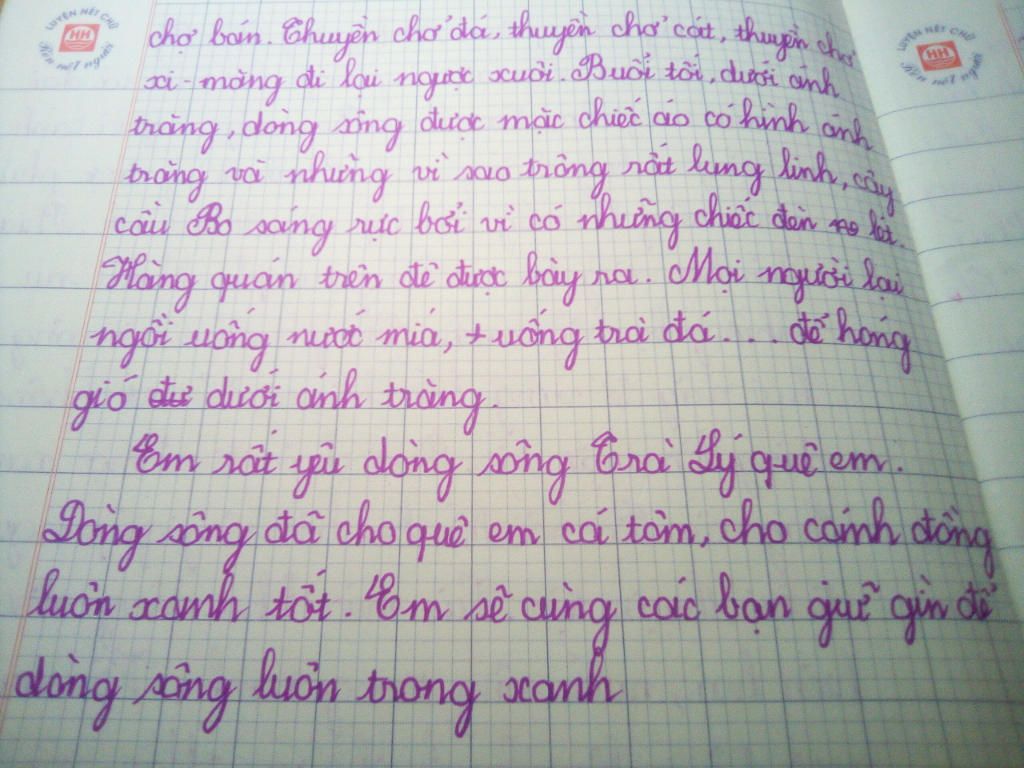 LUYỆN NÉT CHỮ
HH
Rèn nết người
LUYỆN NÉT CHỮ
HH
Rèn nết người
chợ bán. Thuyền chở đá, thuyền chở cát, thuyền chở
xi-măng đi lại ngược xuôi. Buổi tối, dưới ánh
trăng, dòng sông được mặc chiếc áo có hình ảnh
trăng và những vì sao trông rất lung linh, cây
cầu Bo sáng rực bởi vì có những chiếc đèn
Hàng quán trên đê được bày ra. Mọi người lại
ngồi uống nước mía, + uống trà đá... để hóng
gió dưới ánh trăng.
Em rất yêu dòng sông Trà Lý quê em.
Dòng sông đã cho quê em cá tôm, cho cánh đồng
luôn xanh tốt. Em sẽ cùng các bạn giữ gìn để
dòng sông luôn trong xanh